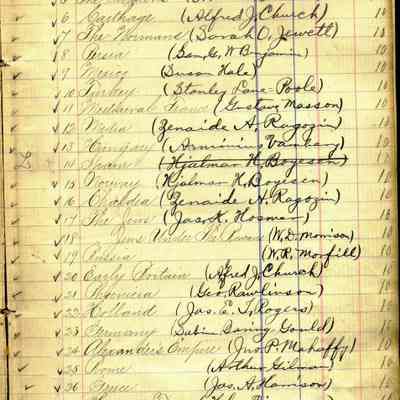 6 Carthage (Alfred J. Church) 10
7 The Normans (Sarah O. Jewett) 10
8 Persia (Geo. G. W. Benjamin) 10
9 Mexico (Susan Hale) 10
10 Turkey (Stanley Lane-Poole) 10
11 Mediaeval France (Gustave Masson) 10
12 Media (Zenaide A. Ragozin) 10
13 Hungary (Arminius Vambery) 10
14 (Hjalmar H. Boyesen) 10
15 Norway (Hjalmar H. Boyesen) 10
16 Chaldea (Zenaide A. Ragozin) 10
17 The Jews (Jas. K. Hosmer) 10
18 Jews Under (W. D. Morrison) 10
19 Russia (W. R. Morfill) 10
20 Early Britain (Alfred J. Church) 10
21 Phoenicia (Geo. Rawlinson) 10
22 Holland (Jas. E. T. Rogers) 10
23 Germany (Sabin Baring Gould) 10
24 Alexander's Empire (Jno. P. Mahaffy) 10
25 Rome (Arthur Gilman) 10
26 Greece (Jas. A. Harrison) 10